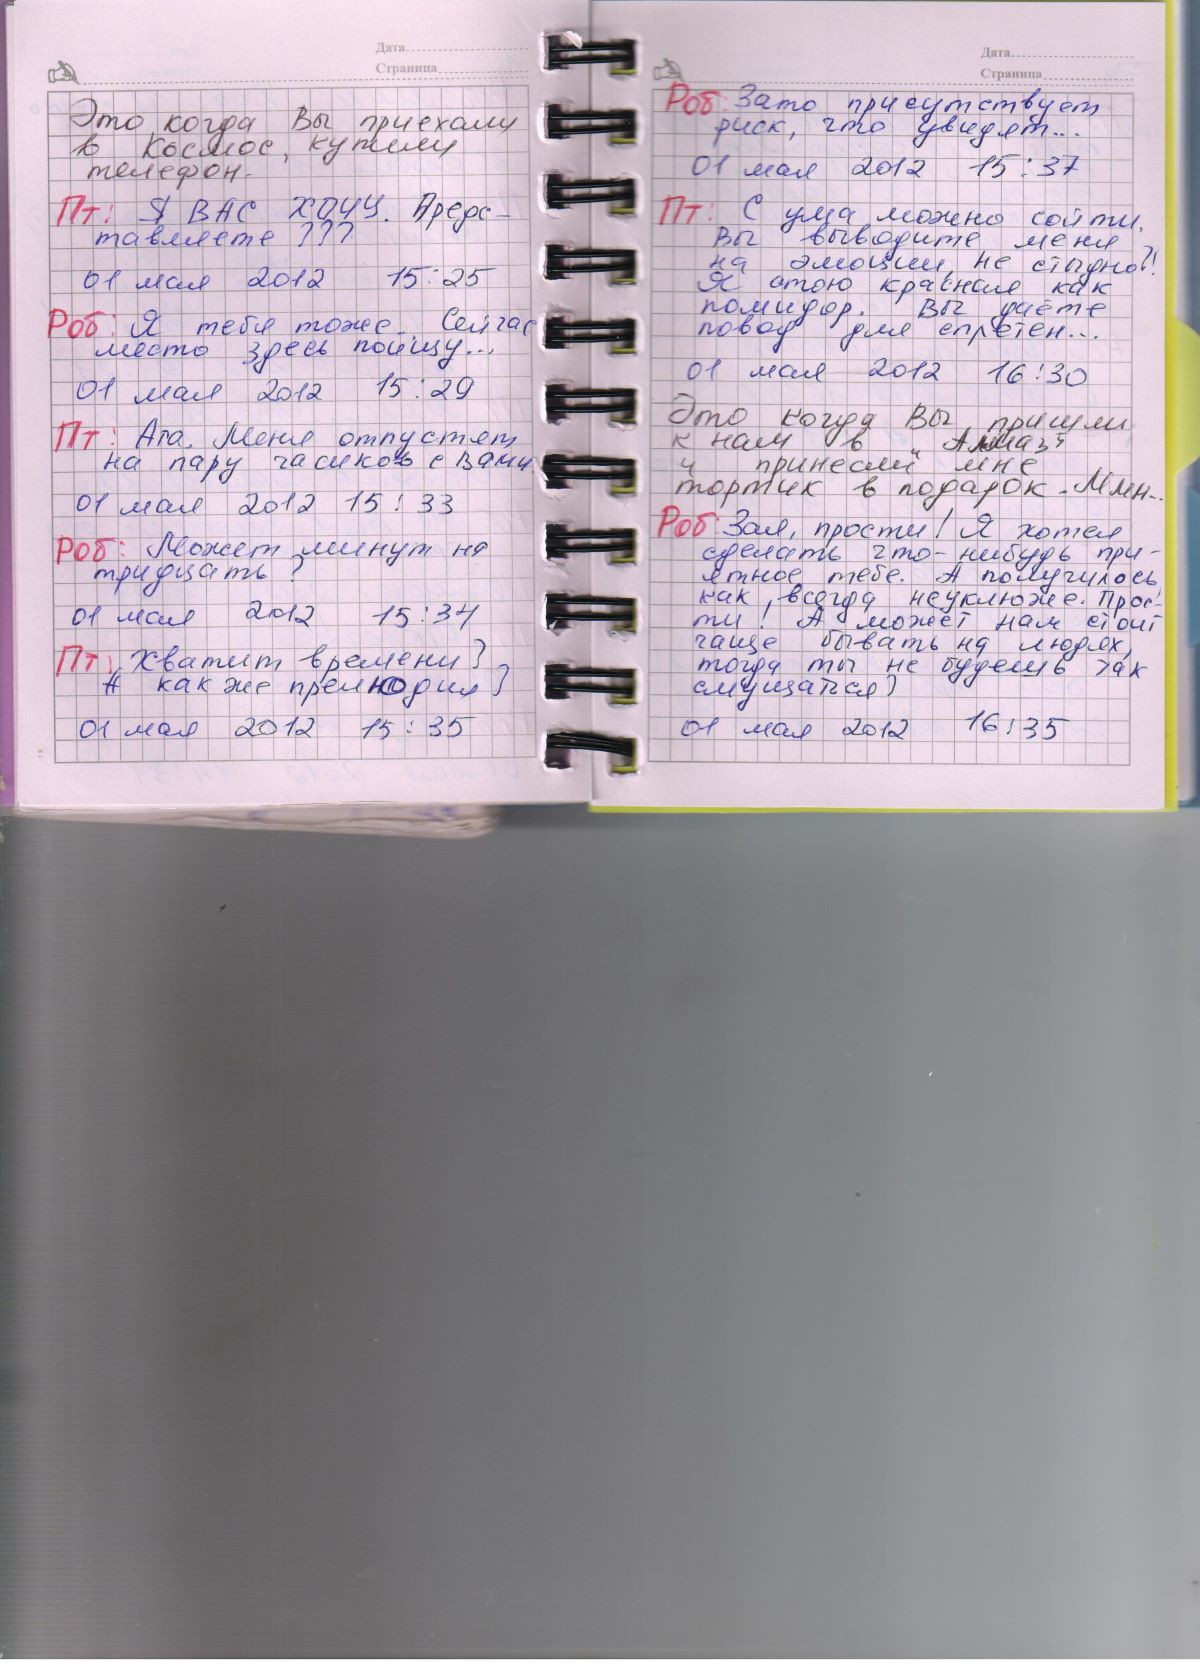 Дата
Страница
Это когда Вы приехали
в Космос, купили
телефон.
Пт: Я ВАС ХОЧУ. Предс-
тавляете ???
01 мая 2012 15:25
Роб: Я тебя тоже. Сейчас
место здесь поищу...
01 мая 2012 15:29
Пт: Ага. Меня отпустят
на пару часиков с Вами
01 мая 2012 15:33
Роб: Может минут на
тридцать?
01 мая 2012 15:34
Пт: Хватит времени?
А как же прелюдия?
01 мая 2012 15:35
Дата
Страница
Роб: Зато присутствует
риск, что увидят...
01 мая 2012 15:37
Пт: С ума можно сойти.
Вы выводите меня
на эмоции, не стыдно?!
Я стою красная как
помидор. Вы даёте
повод для сплетен...
01 мая 2012 16:30
Это когда Вы пришли
к нам в "Алмаз"
и принесли мне
тортик в подарок. Ммм..
Роб: Зая, прости! Я хотел
сделать что-нибудь при-
ятное тебе. А получилось
как всегда неуклюже. Прос-
ти! А может нам стоит
чаще бывать на людях,
тогда ты не будешь так
смущаться?
01 мая 2012 16:35